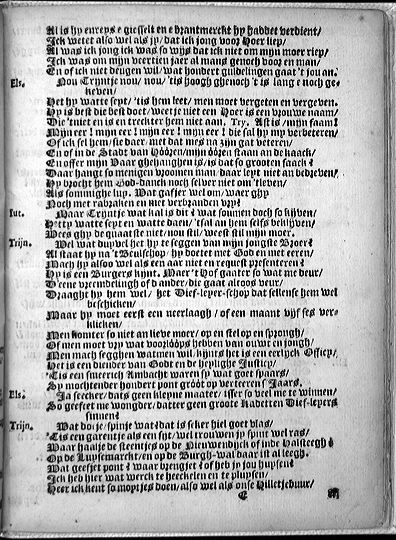 Al is hy eureys e giesselt en e brantmerckt hy haddet verdient/
Ick wetet alsoo wel als jy/ dat ick jong voor Hoer liep/
Al was ick jong ick was so wijs dat ick niet om mijn moer riep/
Ick was om mijn veertien jaer al mans genoch voor en man/
En of ick niet deugen wil/ wat hondert guldelingen gaat 't jou an.
Els. Nou Tryntje nou/ nou/ 'tis hoogh ghenoch 't is lang e noch ge-
keven/
Het hy watte seyt/ 'tis hem leet/ men moet vergeten en vergeven.
Hy is best die best doet/ weetje niet een Hoer is een vrouwe naam/
Die 't niet en is en treckter hem niet aan. Try. Ast is/ mijn faam!
Mijn eer! mijn eer! mijn eer! mijn eer! die sal hy my verbeteren/
Of ick sel hem/ sie daer/ met dat mes na zijn gat veteren/
En of in de Stadt van Hóóren/ mijn óóren staan an de kaack/
En offer mijn Vaar ghehanghen is/ is dat so grooten saack?
Daar hangt so menigen vroomen man/ daar leyt niet an bedreven/
Hy brocht hem God-danck noch selver niet om 'tleven/
Als sommighe lup. Wat gafjer wel om/ waer ghy
Noch met rabraken en met verbranden vry?
Iut. Maar Tryntje wat kal is dit? wat soumen doch so kijven/
H'tty watte seyt en watte daen/ 'tsal an hem selfs beklijven/
Wees ghy de quaatste niet/ nou stil/ weest stil mijn moer.
Trijn. Wel wat duyvel het hy te seggen van mijn jongste Broer?
Al staat hy na 't Beulschop/ hy doetet met God en met eeren/
Mach hy alsoo wel als een aar niet en request presenteeren?
Hy is een Burgers kijnt. Maar 't Hof gaater so wat me deur/
D'eene vreemdelingh of d'ander/ die gaat altoos veur/
Draaght hy hem wel/ het Dief-leyer-schop dat sellense hem wel
beschicken/
Maar hy moet eerst een neerlaagh/ of een maant vijf ses ver-
klicken/
Men komter so niet an lieve moer/ op en stel op en sprongh/
Of men moet vry wat voorlóóps hebben van ouwt en jongh/
Men mach segghen watmen wil/ kijnts het is een eerlyck Officy/
Het is een diender van Godt en de heylighe Justicy/
'Tis een smeerich Ambacht waren sy wat goet spaars/
Sy mochtender hondert pont gróót op verteeren 's Jaars.
Els. Ja seecker/ dats geen kleyne maater/ isser so veel me te winnen/
So geeftet me wongder/ datter geen groote Kadetten Dief-leyers
sinnen?
Trijn. Wat doj je/ spinje wat? dat is seker hiel goet vlas/
'Tis een garentje als een sijt/ wel trouwen jy spint wel ras/
Waar haalje de steentjes op de Nieuwendijck of inde Halsteegh?
Op de Luysemarckt/ en op de Burgh-wal daar ist al leegh.
Wat geefjet pont? waar brengjet? of heb jy jou huysen?
Ick heb hier wat werck te heeckelen en te pluysen/
Heer ick kent so moytjes doen/ alsoo wel als onse Hilletjebuur/
E